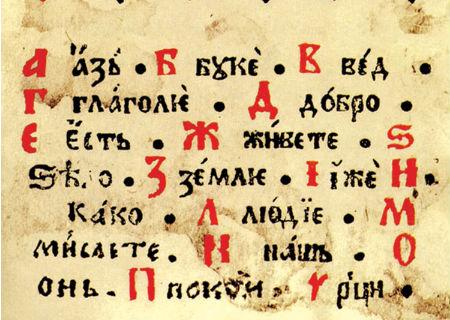 А а́зь • Б бꙋкѐ • В ве́д •
Г глаго́лѥ • Д до́бро •
Е е́сть • Ж живете • Ѕ
ѕѣло • З зе́млѥ • І їжѐ • К
ка́ко • Л лю́дїе • М
ми́слете • Н на́шь • О
онь • П покои • Р рци •